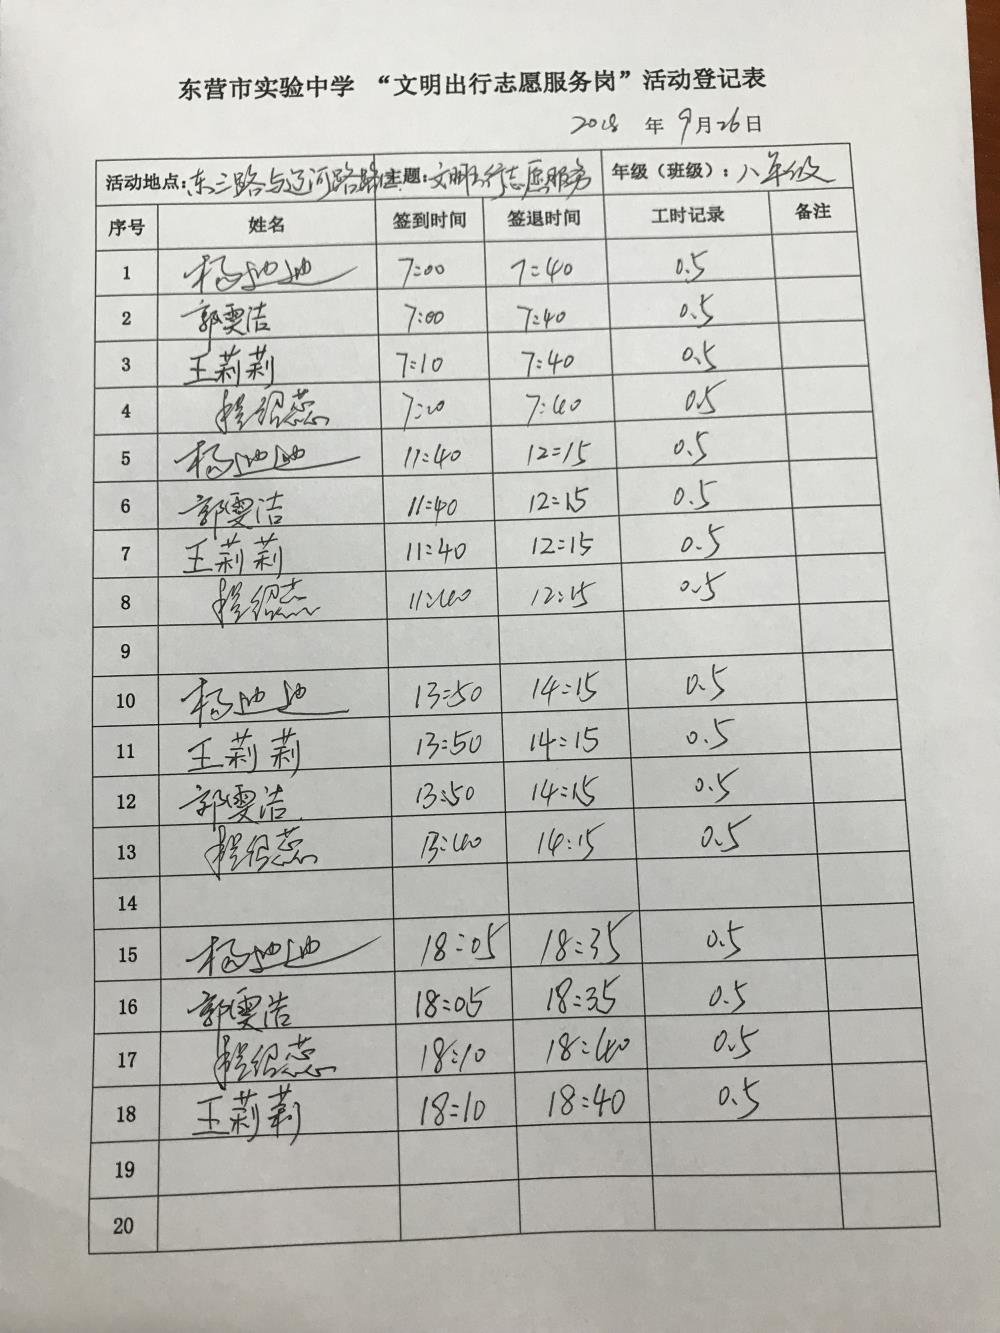 东营市实验中学 “文明出行志愿服务岗”活动登记表
2018 年 9月26日
活动地点：东三路与辽河路 主题：文明出行志愿服务 年级（班级）：八年级
序号 姓名 签到时间 签退时间 工时记录 备注
1 杨地地 7:00 7:40 0.5
2 郭雯洁 7:00 7:40 0.5
3 王莉莉 7:10 7:40 0.5
4 程绍蕊 7:40 0.5
5 杨地地 11:40 12:15 0.5
6 郭雯洁 11:40 12:15 0.5
7 王莉莉 11:40 12:15 0.5
8 程绍蕊 11:40 12:15 0.5
9
10 杨地地 13:50 14:15 0.5
11 王莉莉 13:50 14:15 0.5
12 郭雯洁 13:50 14:15 0.5
13 程绍蕊 13:40 14:15 0.5
14
15 杨地地 18:05 18:35 0.5
16 郭雯洁 18:05 18:35 0.5
17 程绍蕊 18:10 18:40 0.5
18 王莉莉 18:10 18:40 0.5
19
20